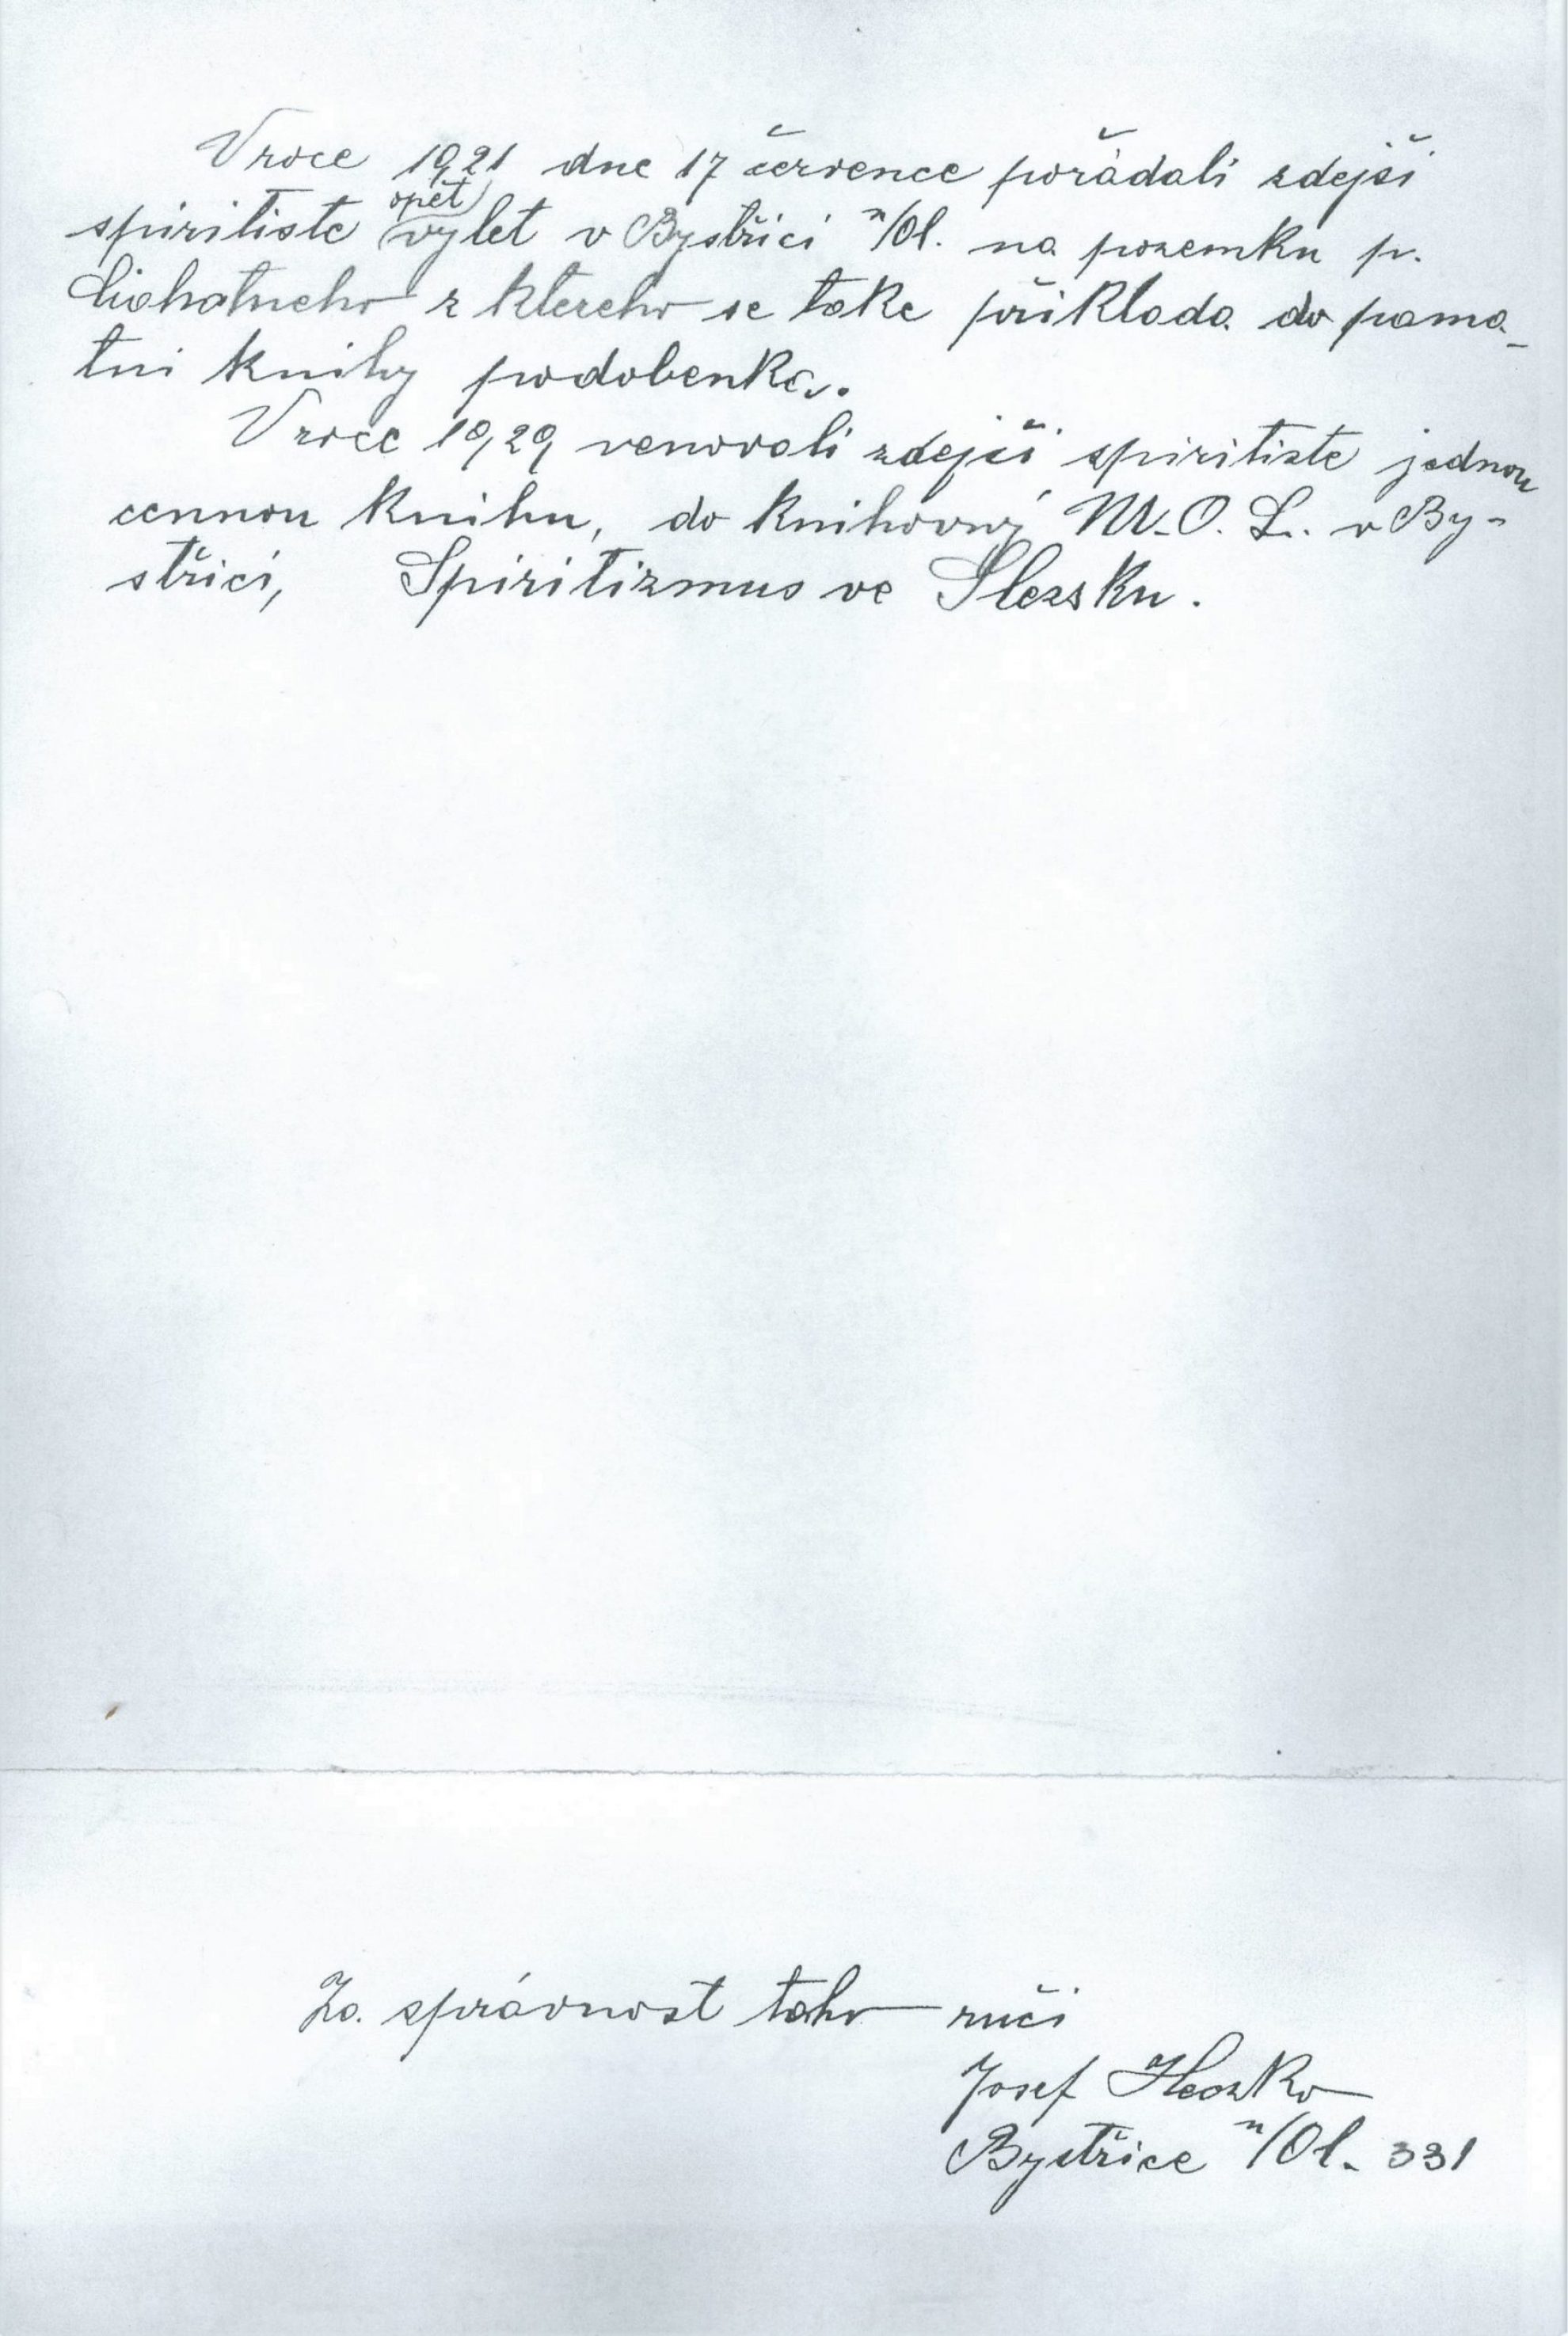 V roce 1921 dne 17 července pořádali zdejší
spiritiste opět výlet v Bystřici n/Ol. na pozemku p.
z ktereho se take přiklada do pama-
tni knihy podobenka.
V roce 1929 venovali zdejší spiritiste jednou
cennou knihu, do knihovny M.O.L. v By-
střici, Spiritizmus ve Slezsku.
Za správnost toho ručí
Josef Heczko
Bystřice n/Ol. 331